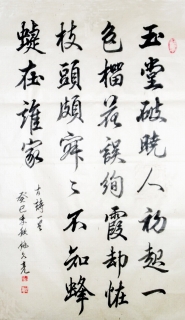 玉堂破曉人初起一
色榴花誤絢霞却怪
枝頭頗寂々不知蜂
蜨在誰家
古詩一首
癸巳年秋